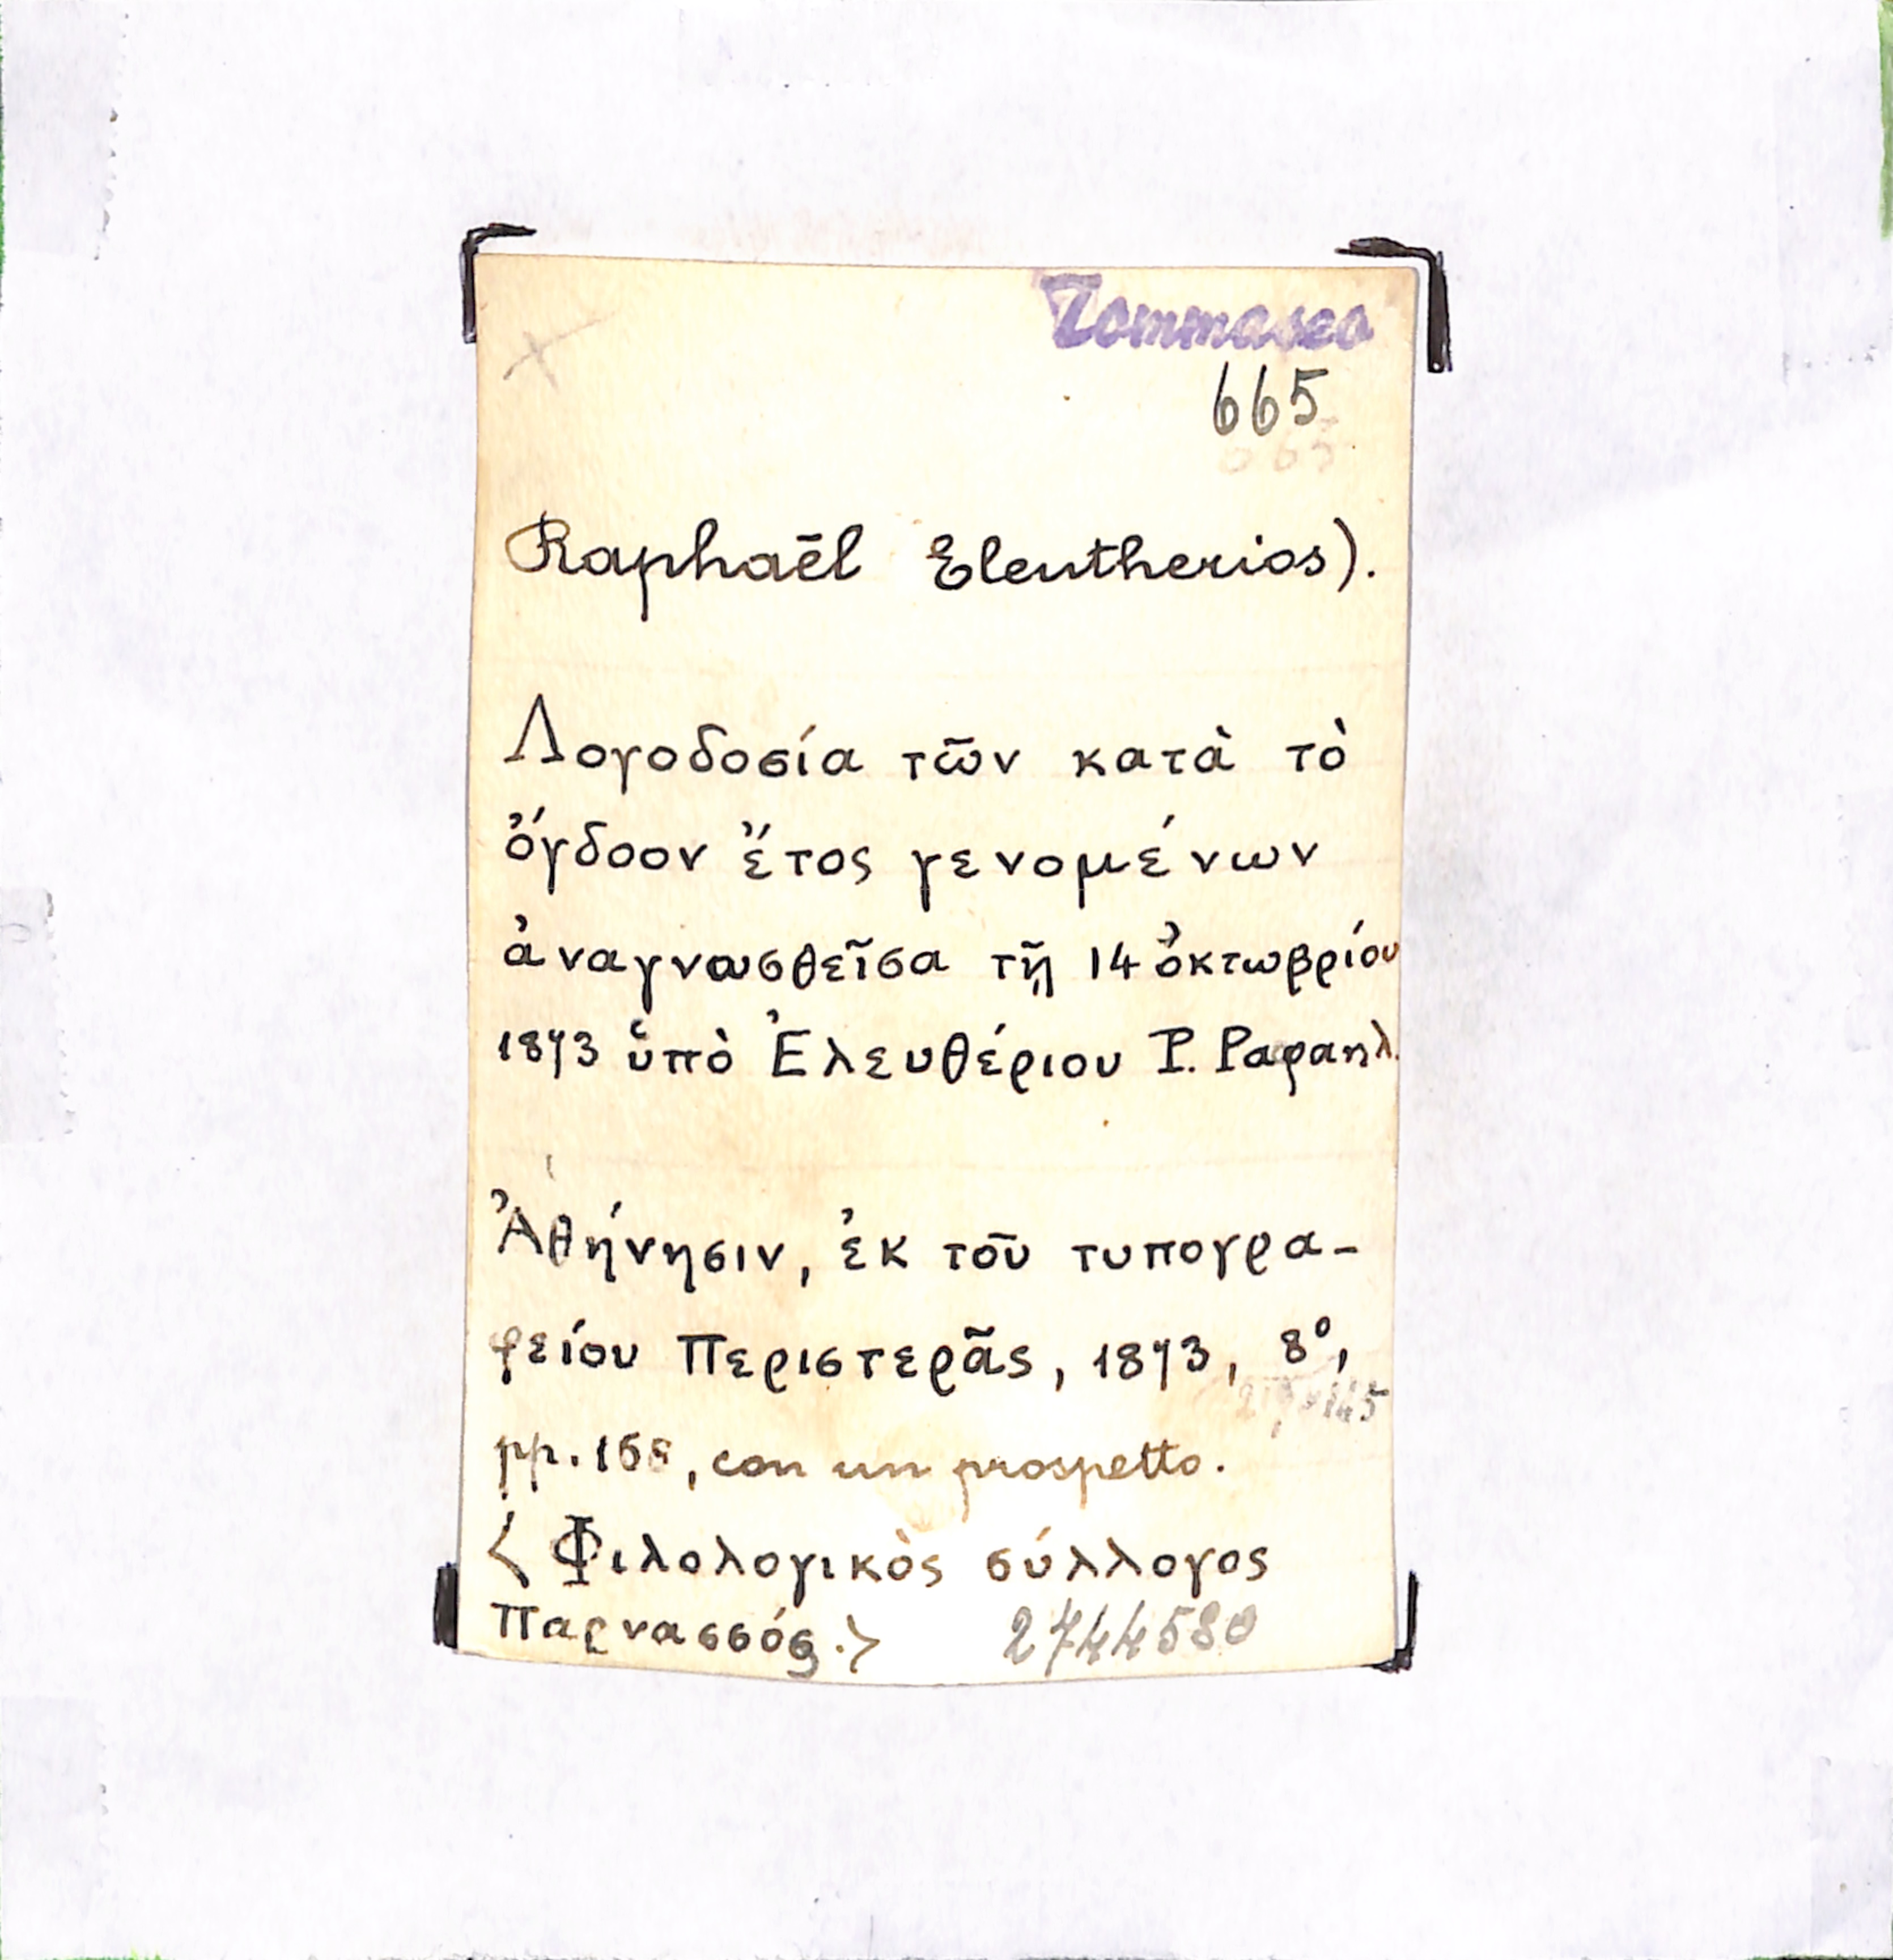 Tommaseo
665
Raphaēl Eleutherios).
Λογοδοσία τῶν κατὰ τὸ
ὄγδοον ἔτος γενομένων
ἀναγνωσθεῖσα τῇ 14 ὀκτωβρίου
1873 ὑπὸ Ἐλευθέριου Ρ. Ραφαηλ.
Ἀθήνησιν, ἐκ τοῦ τυπογρα-
φείου Περιστερᾶς, 1873, 8°,
pp. 168, con un prospetto.
<Φιλολογικὸς σύλλογος
Παρνασσός.> 2744580